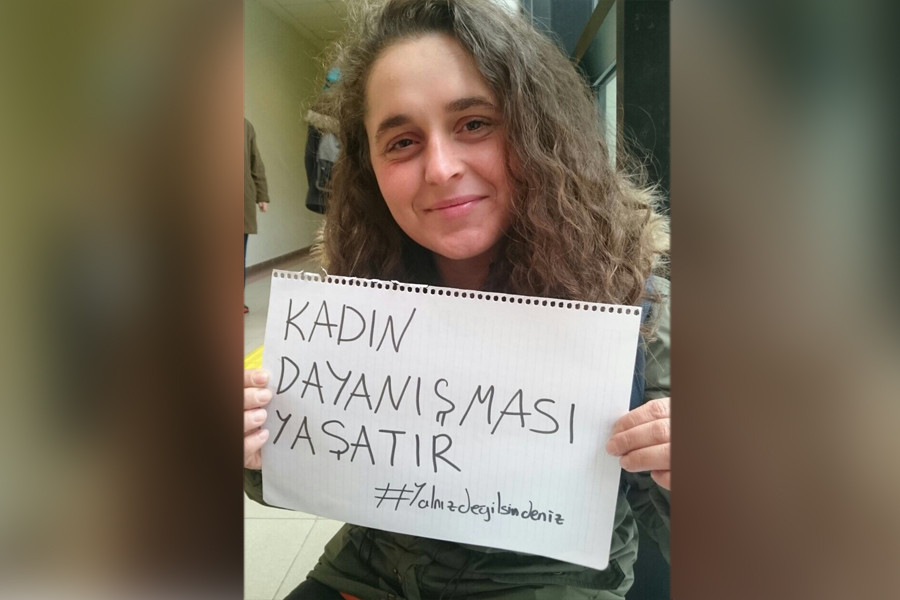 KADIN
DAYANIŞMASI
YAŞATIR
#Yalnızdegilsindeniz